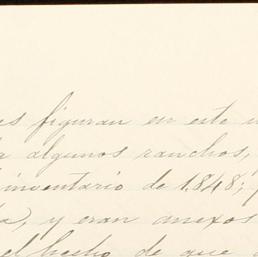 es figuran en este
algunos ranchos,
inventario de 1,848;
y eran anexos
el hecho de que